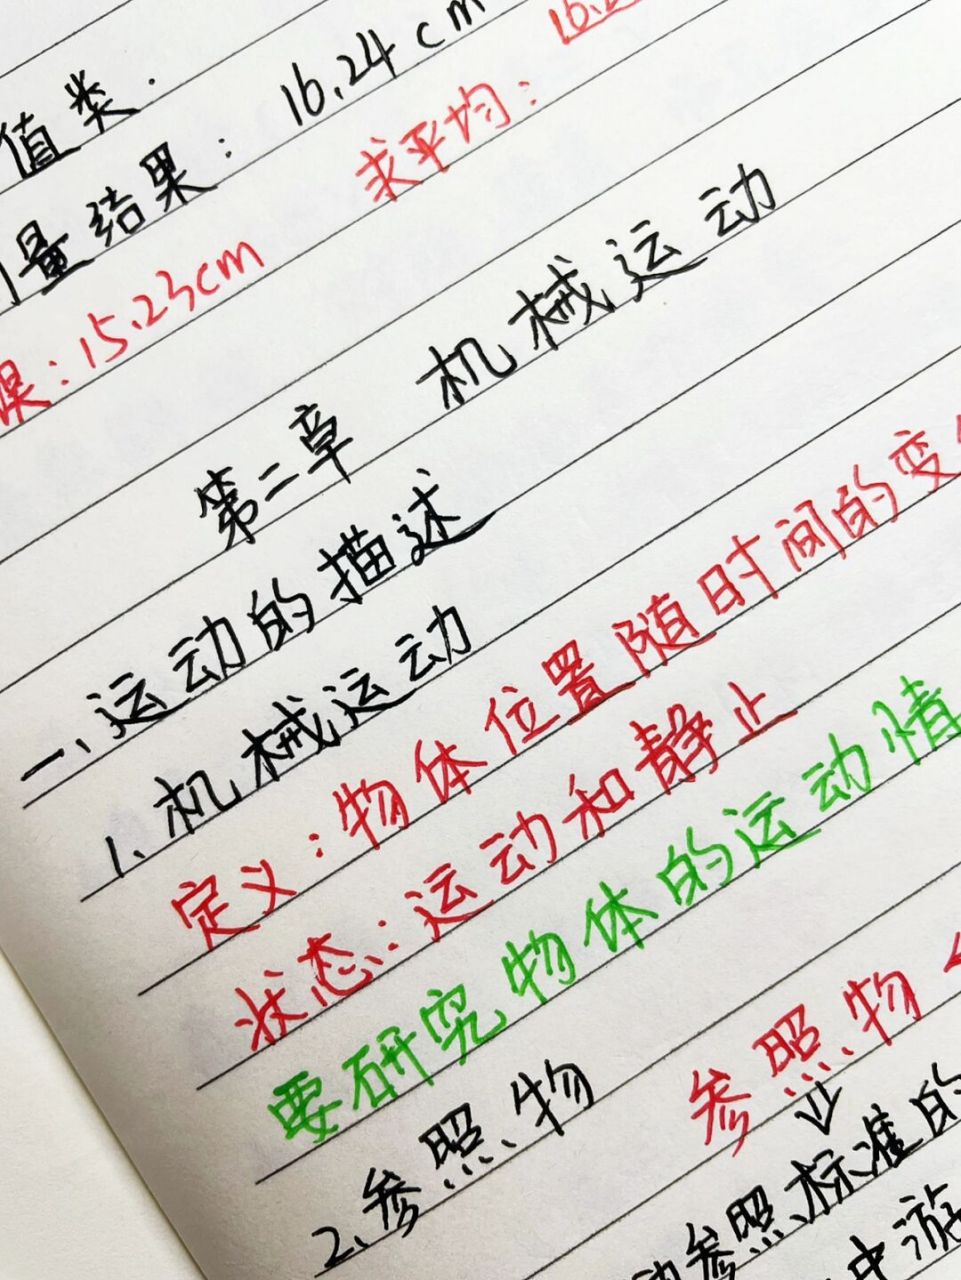 值类.
量结果: 16.24cm
果: 15.23cm 求平均:
第二章 机械运动
一、运动的描述
1、机械运动
定义: 物体位置随时间的变
状态: 运动和静止
要研究物体的运动情
2、参照物 参照物
参照标准的
中游